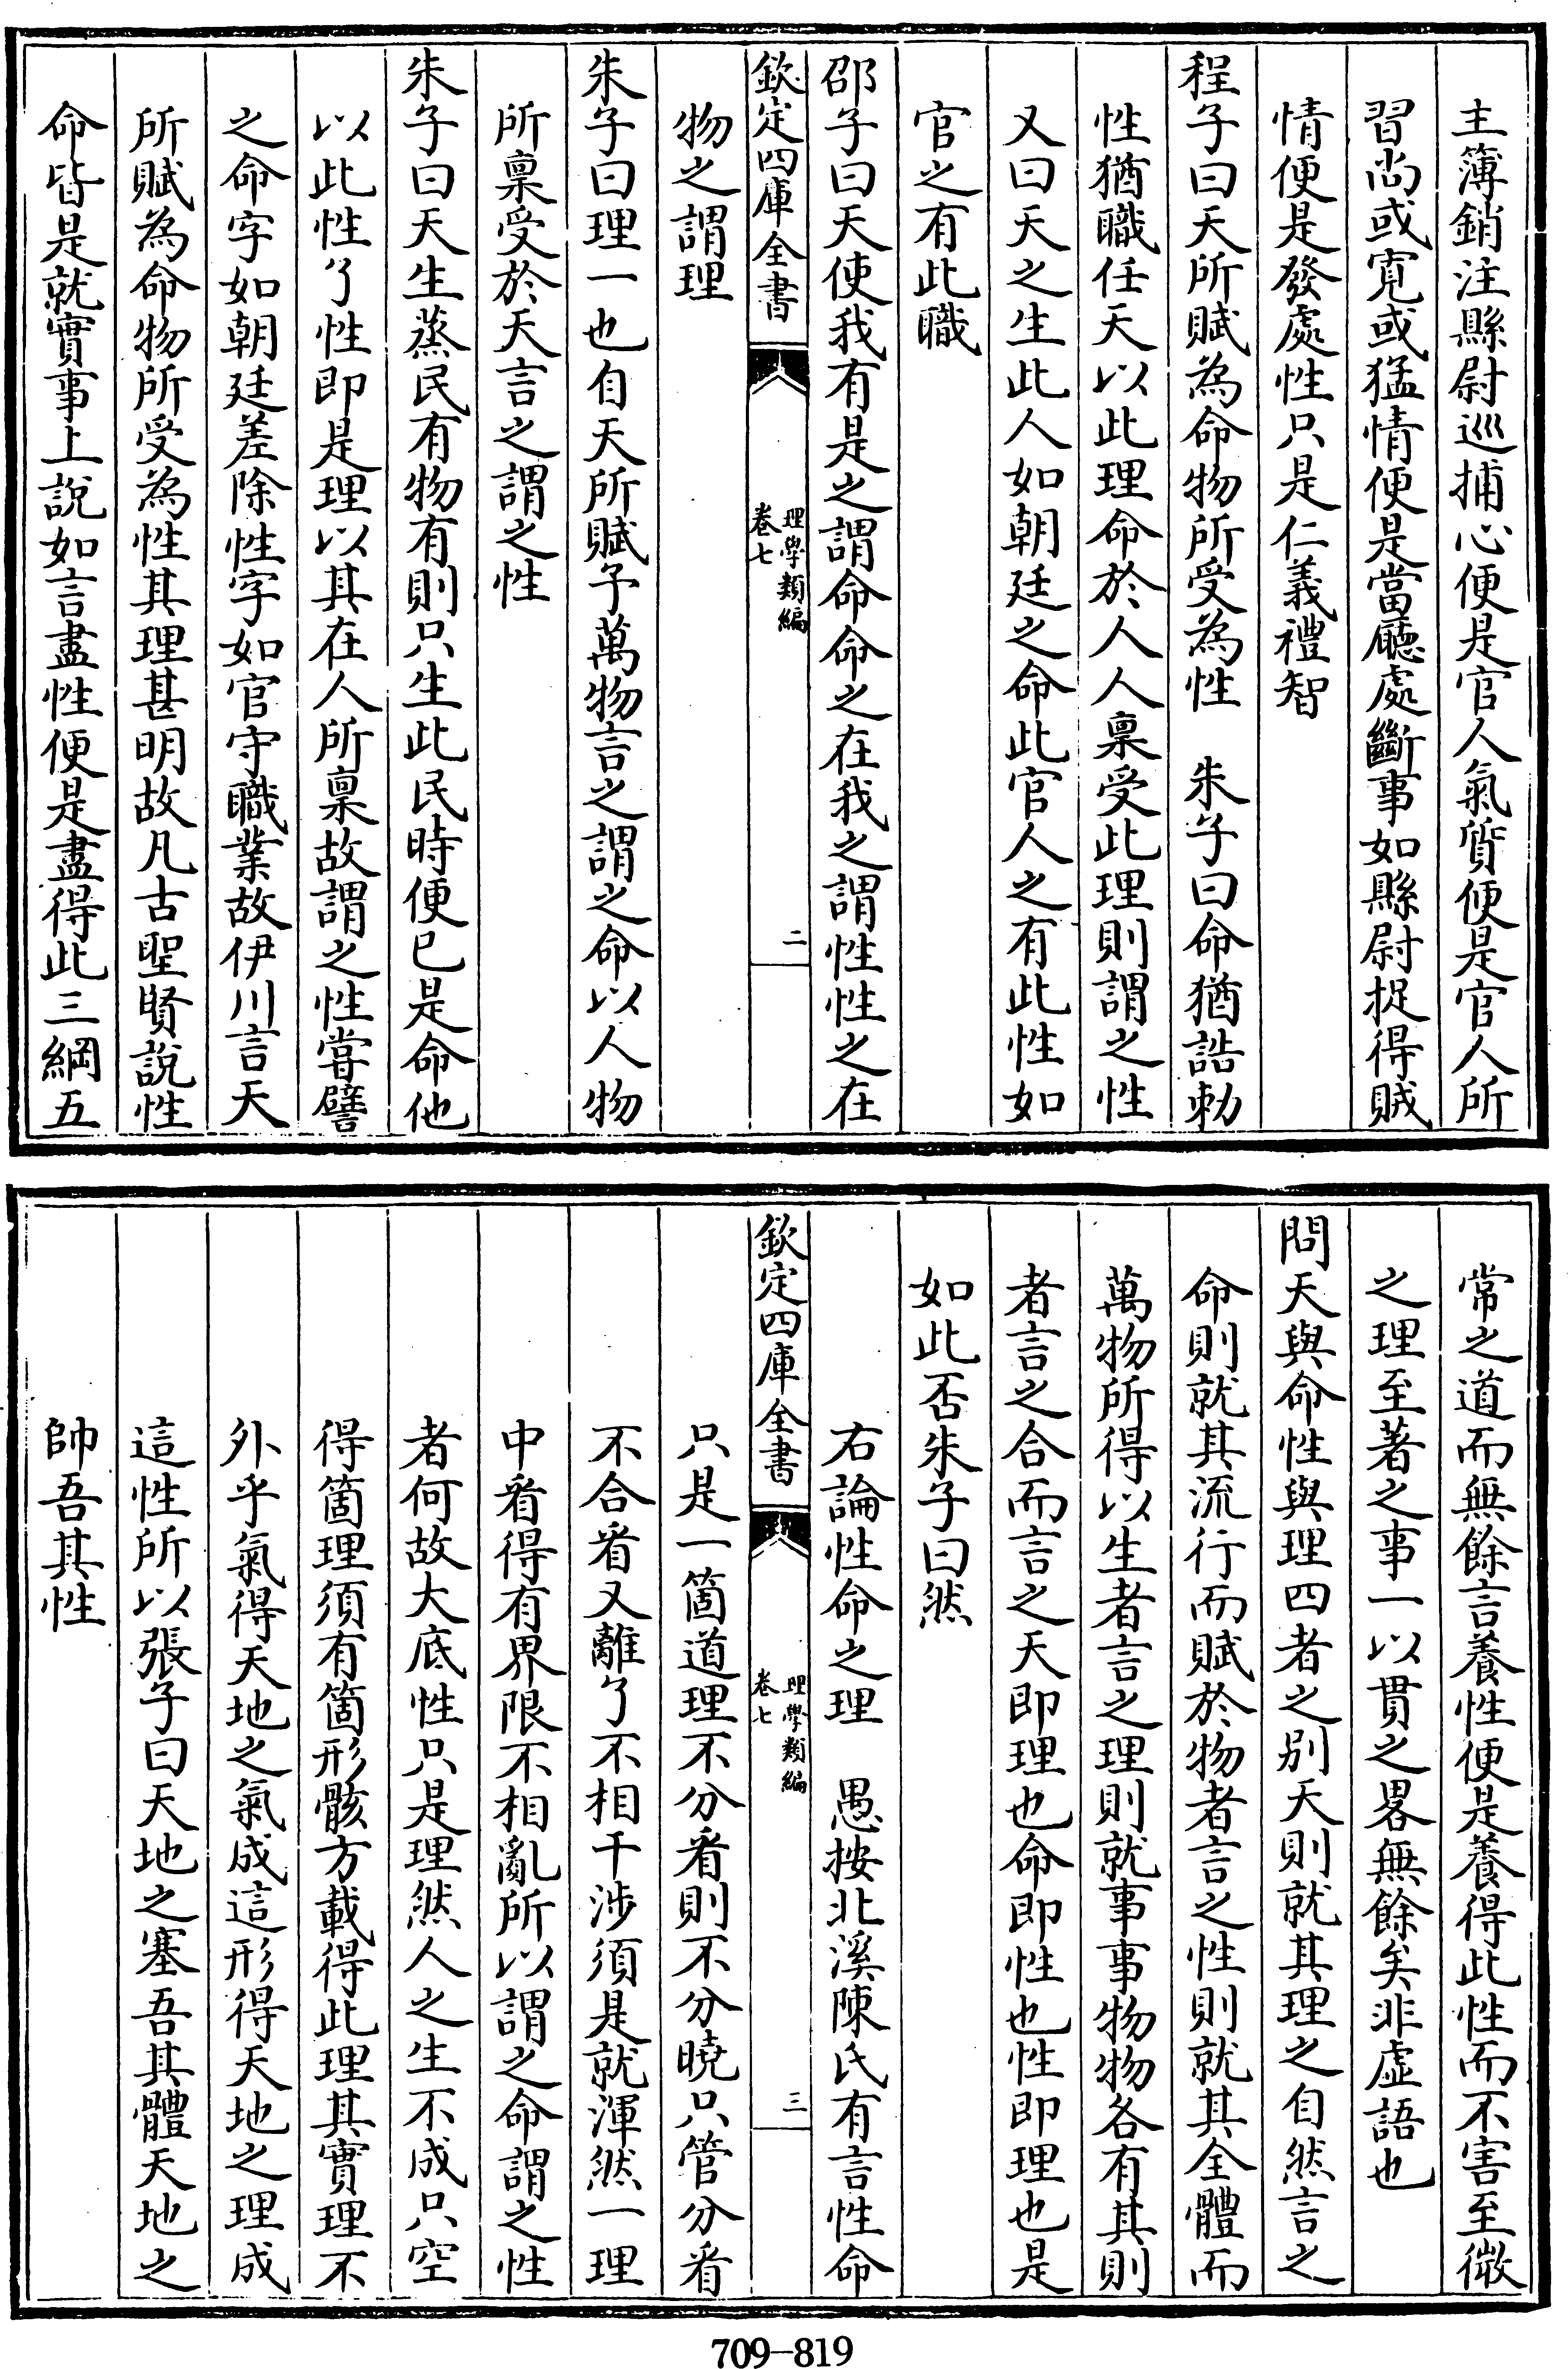 主簿銷注縣尉巡捕心便是官人氣質便是官人所
習尚或寛或猛情便是當廳處斷事如縣尉捉得賊
情便是發處性只是仁義禮智
程子曰天所賦為命物所受為性　朱子曰命猶誥勅
性猶職任天以此理命於人人稟受此理則謂之性
又曰天之生此人如朝廷之命此官人之有此性如
官之有此職
邵子曰天使我有是之謂命命之在我之謂性性之在
欽定四庫全書　理學類編　卷七　二
物之謂理
朱子曰理一也自天所賦予萬物言之謂之命以人物
所稟受於天言之謂之性
朱子曰天生蒸民有物有則只生此民時便已是命他
以此性了性即是理以其在人所稟故謂之性嘗譬
之命字如朝廷差除性字如官守職業故伊川言天
所賦為命物所受為性其理甚明故凡古聖賢說性
命皆是就實事上說如言盡性便是盡得此三綱五
常之道而無餘言養性便是養得此性而不害至微
之理至著之事一以貫之畧無餘矣非虛語也
問天與命性與理四者之別天則就其理之自然言之
命則就其流行而賦於物者言之性則就其全體而
萬物所得以生者言之理則就事事物物各有其則
者言之合而言之天即理也命即性也性即理也是
如此否朱子曰然
右論性命之理　愚按北溪陳氏有言性命
欽定四庫全書　理學類編　卷七　三
只是一箇道理不分看則不分曉只管分看
不合看又離了不相干涉須是就渾然一理
中看得有界限不相亂所以謂之命謂之性
者何故大底性只是理然人之生不成只空
得箇理須有箇形骸方載得此理其實理不
外乎氣得天地之氣成這形得天地之理成
這性所以張子曰天地之塞吾其體天地之
帥吾其性
709-819